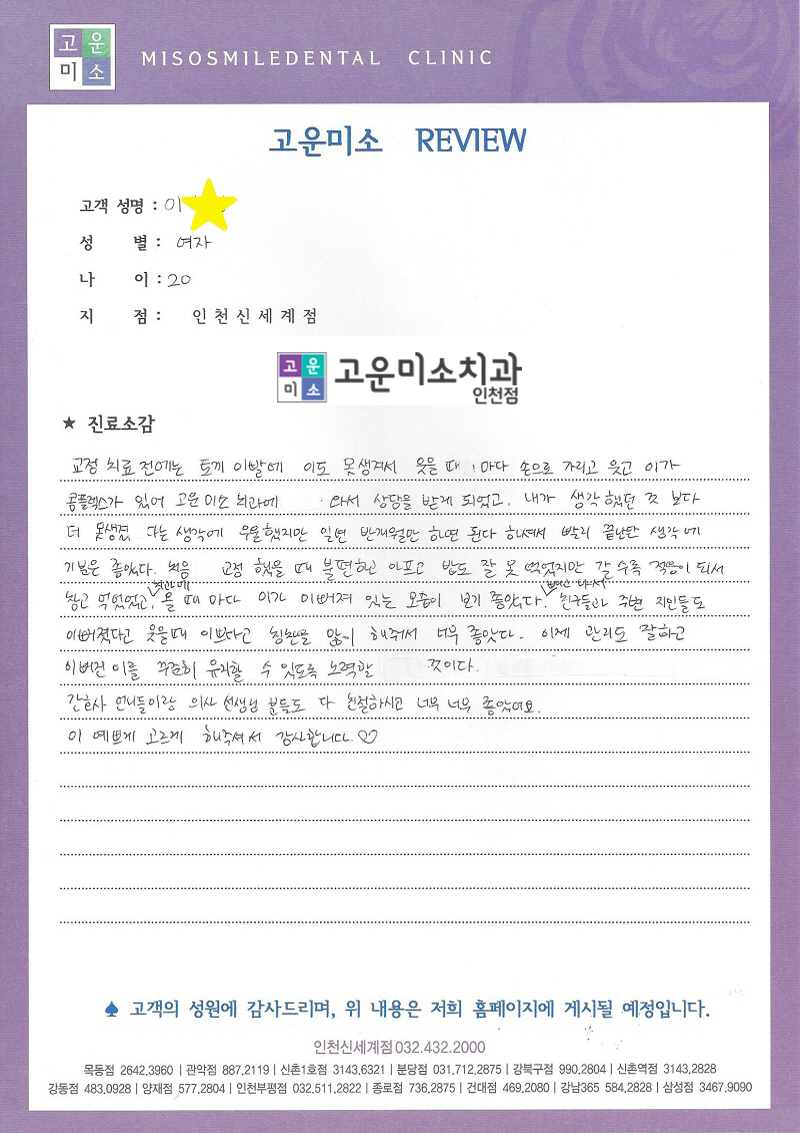 고운
미소
MISOSMILEDENTAL CLINIC
고운미소 REVIEW
고객 성명 : 이
성 별 : 여자
나 이 : 20
지 점 : 인천신세계점
고운
미소
고운미소치과
인천점
★ 진료소감
교정 치료 전에는 토끼 이빨에 이도 못생겨서 웃을 때 마다 손으로 가리고 웃고 이가
콤플렉스가 있어 고운미소 치과에 와서 상담을 받게 되었고, 내가 생각했던 것 보다
더 못생겼다는 생각에 우울했지만 일년 반개월만 하면 된다 하셔서 빨리 끝난단 생각에
기분은 좋았다. 처음 교정 했을 때 불편하고 아프고 밥도 잘 못 먹었지만 갈 수록 적응이 되서
참고 먹었었고, 치과에 올 때 마다 이가 이뻐져 있는 모습이 보기 좋았다. 친구들과 주변 지인들도
이뻐졌다고 웃을때 이쁘다고 칭찬을 많이 해주셔서 너무 좋았다. 이제 관리도 잘하고
이뻐진 이를 꾸준히 유지할 수 있도록 노력할 것이다.
간호사 언니들이랑 의사 선생님 분들도 다 친절하시고 너무 너무 좋았어요.
이 예쁘게 고르게 해주셔서 감사합니다.♡
♠ 고객의 성원에 감사드리며, 위 내용은 저희 홈페이지에 게시될 예정입니다.
인천신세계점 032.432.2000
목동점 2642.3960 | 관악점 887.2119 | 신촌1호점 3143.6321 | 분당점 031.712.2875 | 강북구점 990.2804 | 신촌역점 3143.2828
강동점 483.0928 | 양재점 577.2804 | 인천부평점 032.511.2822 | 종로점 736.2875 | 건대점 469.2080 | 강남365 584.2828 | 삼성점 3467.9090